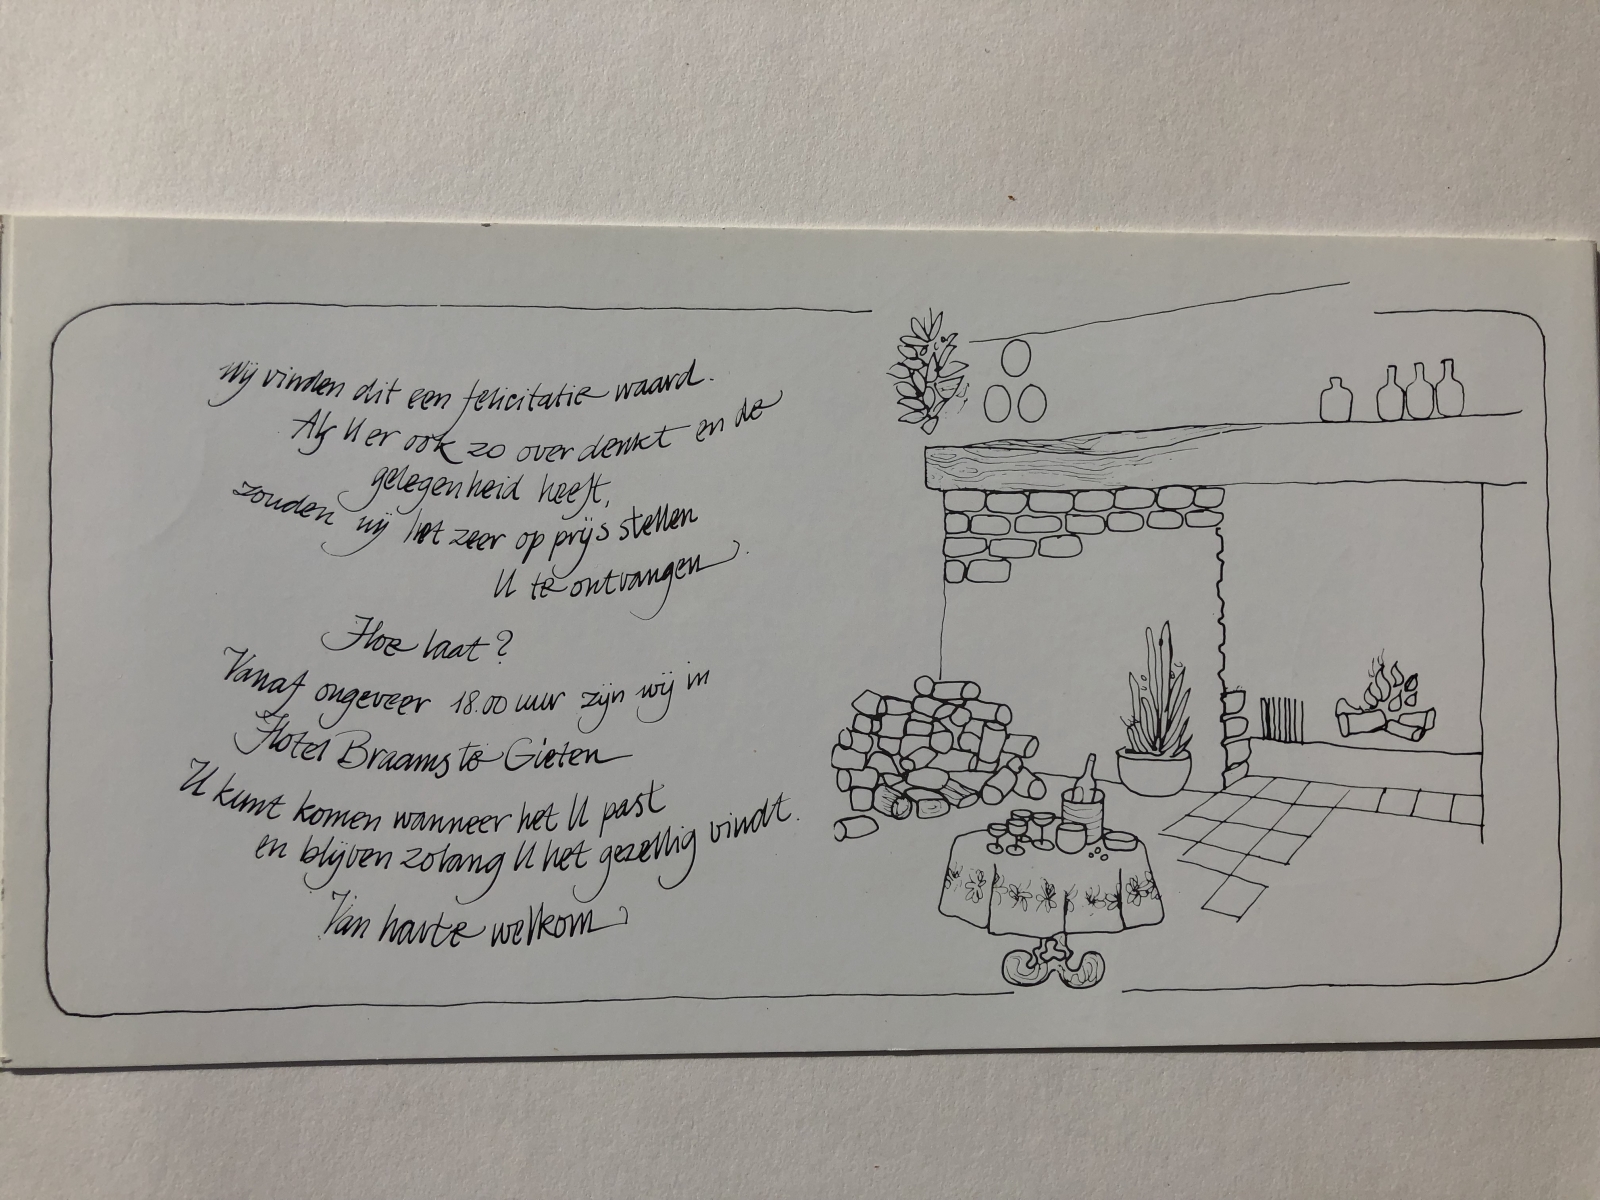 Wij vinden dit een felicitatie waard.
Als U er ook zo over denkt en de
gelegenheid heeft,
zouden wij het zeer op prijs stellen
U te ontvangen.
Hoe laat?
Vanaf ongeveer 18.00 uur zijn wij in
Hotel Braams te Gieten
U kunt komen wanneer het U past
en blijven zolang U het gezellig vindt.
Van harte welkom